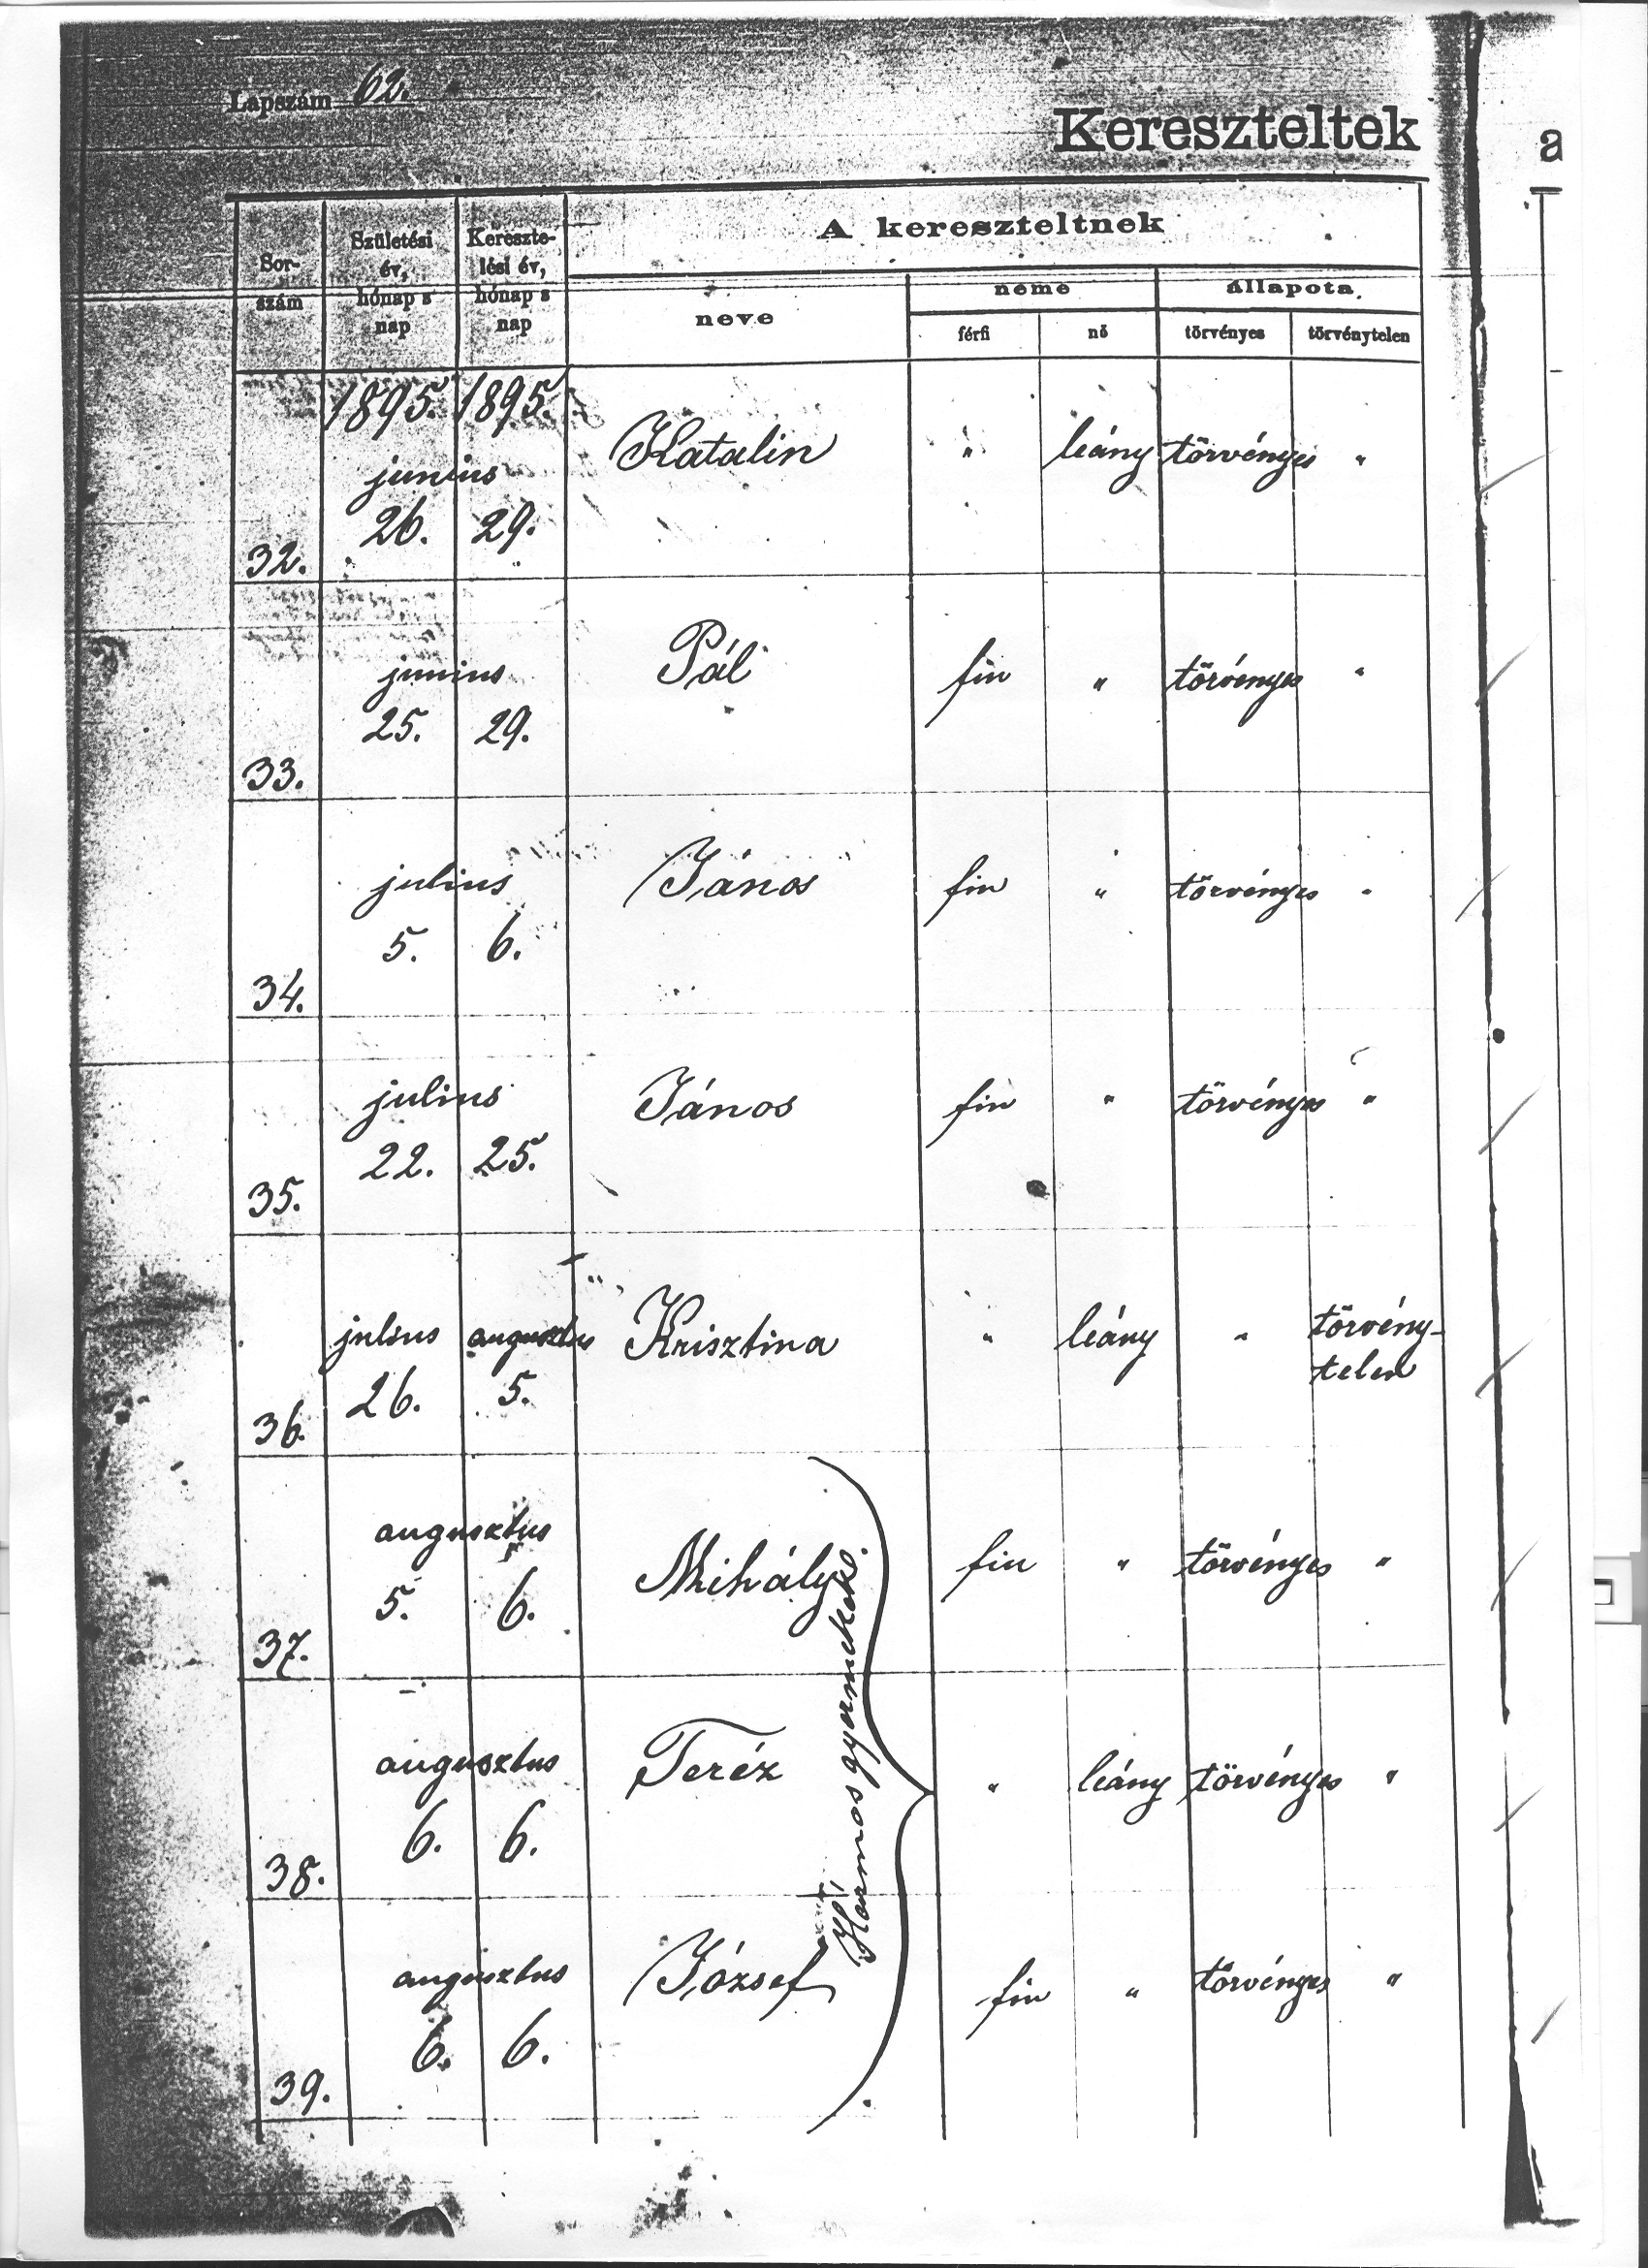 Lapszám 62.
Kereszteltek
a
Sor-
szám
Születési
év,
hónap s
nap
Kereszte-
lési év,
hónap s
nap
A kereszteltnek
neve
neme
állapota
férfi
nő
törvényes
törvénytelen
1895. 1895.
junius
26. 29.
Katalin
" leány törvényes "
32.
junius
25. 29.
Pál
fiu " törvényes "
33.
julius
5. 6.
János
fiu " törvényes "
34.
julius
22. 25.
János
fiu " törvényes "
35.
julius augusztus
26. 5.
Krisztina
" leány " törvény-
telen
36.
augusztus
5. 6.
Mihály
fiu " törvényes "
37.
augusztus
6. 6.
Teréz
" leány törvényes "
38.
augusztus
6. 6.
József
fiu " törvényes "
39.
Hármos gyermekek.